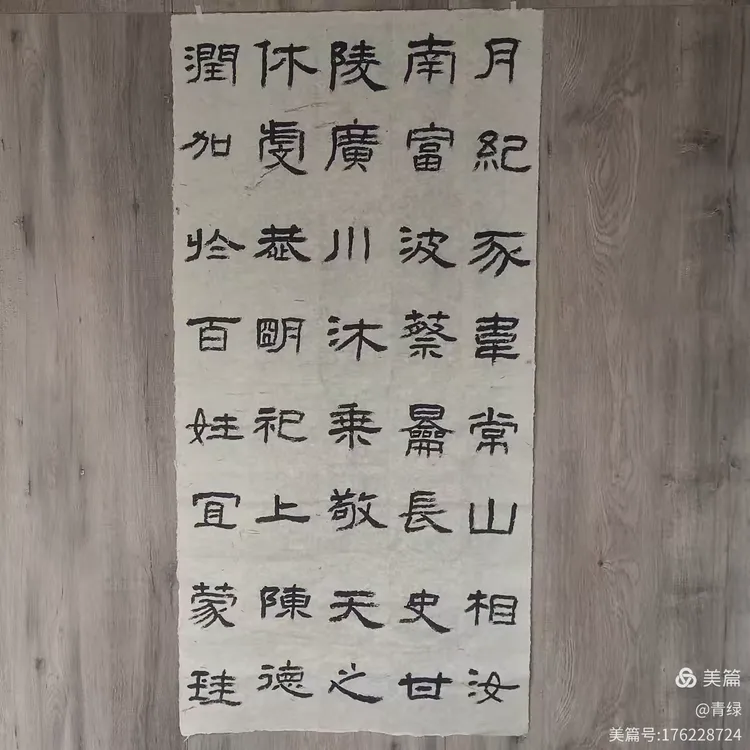 月紀豕韋常山相汝
南富波蔡長史甘
陵廣川沐乘敬天之
休虔恭明祀上陳德
潤加於百姓宜蒙珪
美篇
@青绿
美篇号:176228724